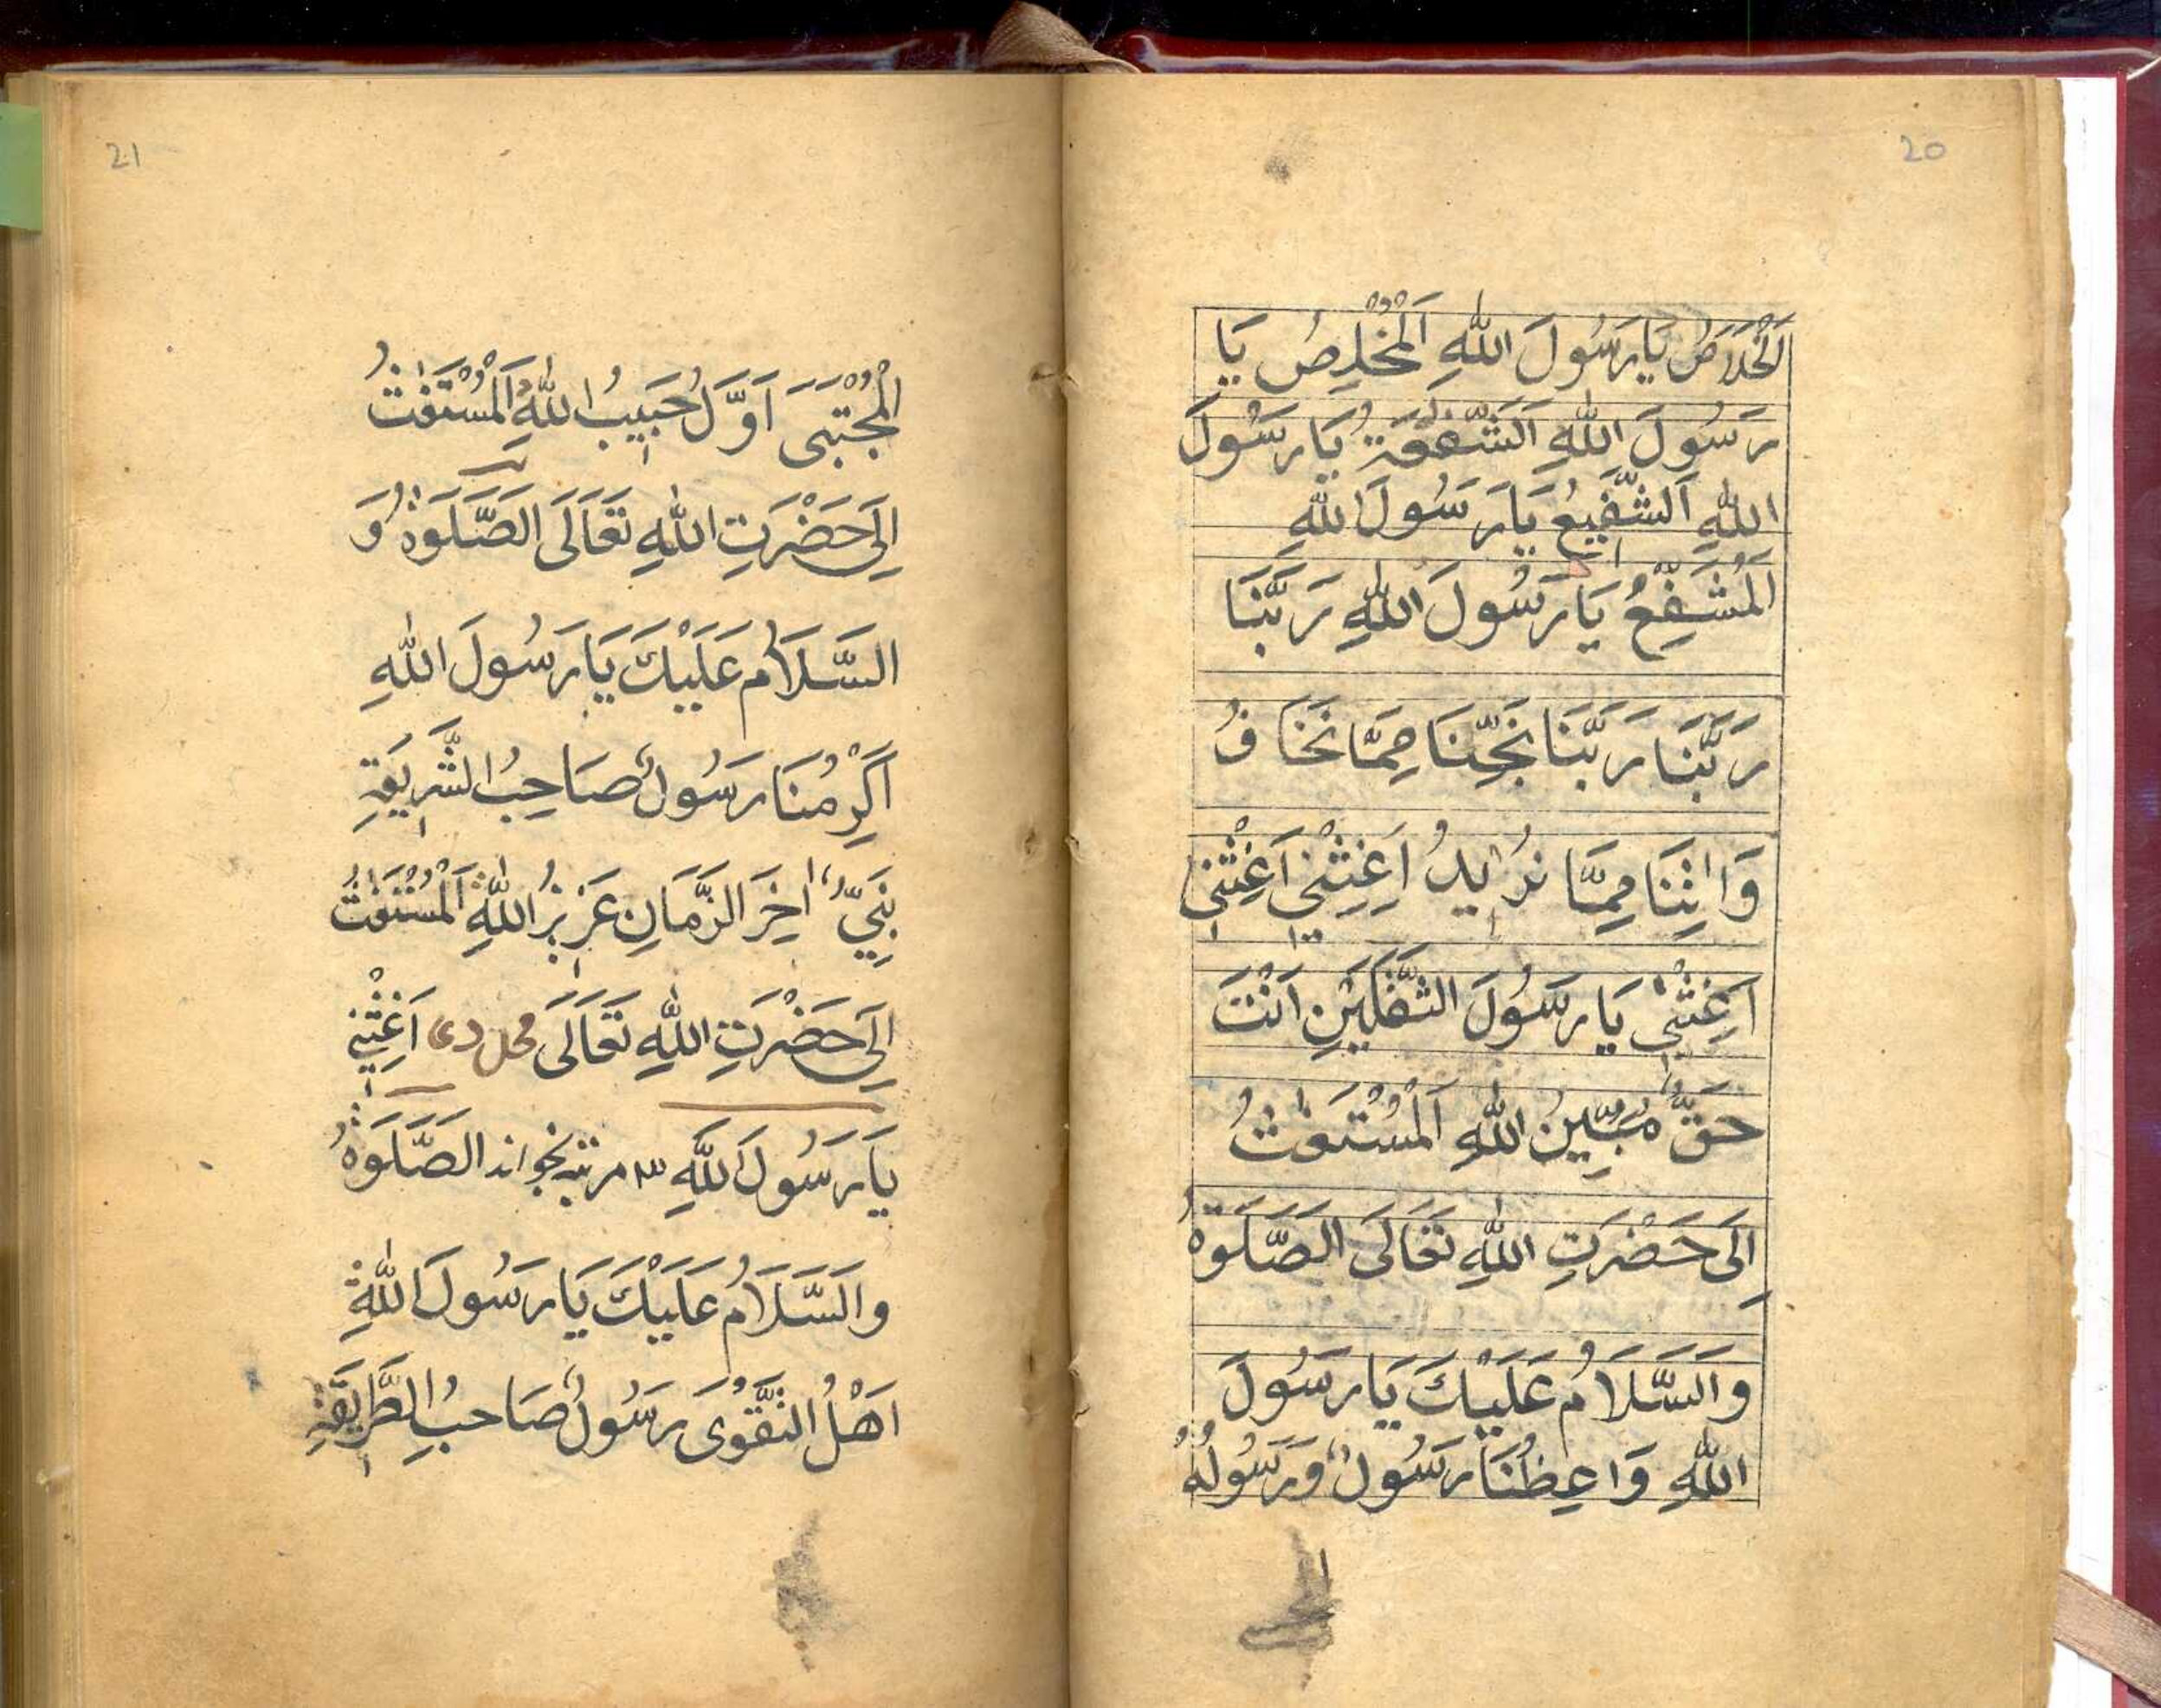 20
اَلْخَلَاصُ يَا رَسُولَ اللّٰهِ اَلْمُخْلِصُ يَا
رَسُولَ اللّٰهِ اَلشَّفَقَةُ يَا رَسُولَ
اللّٰهِ اَلشَّفِيعُ يَا رَسُولَ اللّٰهِ
اَلْمُشَفِّعُ يَا رَسُولَ اللّٰهِ رَبَّنَا
رَبَّنَا رَبَّنَا نَجِّنَا مِمَّا نَخَافُ
وَاٰتِنَا مِمَّا نُرِيدُ اَغِثْنِي اَغِثْنِي
اَغِثْنِي يَا رَسُولَ الثَّقَلَيْنِ اَنْتَ
حَقٌّ مُبِينُ اللّٰهِ اَلْمُسْتَغٰثُ
اِلَى حَضْرَتِ اللّٰهِ تَعَالَى الصَّلَوةُ
وَالسَّلَامُ عَلَيْكَ يَا رَسُولَ
اللّٰهِ وَاعِظُنَا رَسُولٌ وَرَسُولُهُ
21
الْمُجْتَبَى اَوَّلُ حَبِيبُ اللّٰهِ اَلْمُسْتَغٰثُ
اِلَى حَضْرَتِ اللّٰهِ تَعَالَى الصَّلَوٰةُ وَ
السَّلَامُ عَلَيْكَ يَا رَسُولَ اللّٰهِ
اَكْرِمُنَا رَسُولٌ صَاحِبُ الشَّرِيعَةِ
نَبِيٌّ اٰخِرَ الزَّمَانِ عَزِيزُ اللّٰهِ اَلْمُسْتَغٰثُ
اِلَى حَضْرَتِ اللّٰهِ تَعَالَى اَغِثْنِي
يَا رَسُولَ اللّٰهِ ٣ مرتبه بخواند الصَّلَوٰةُ
وَالسَّلَامُ عَلَيْكَ يَا رَسُولَ اللّٰهِ
اَهْلُ التَّقْوَى رَسُولٌ صَاحِبُ الطَّرِيقَةِ